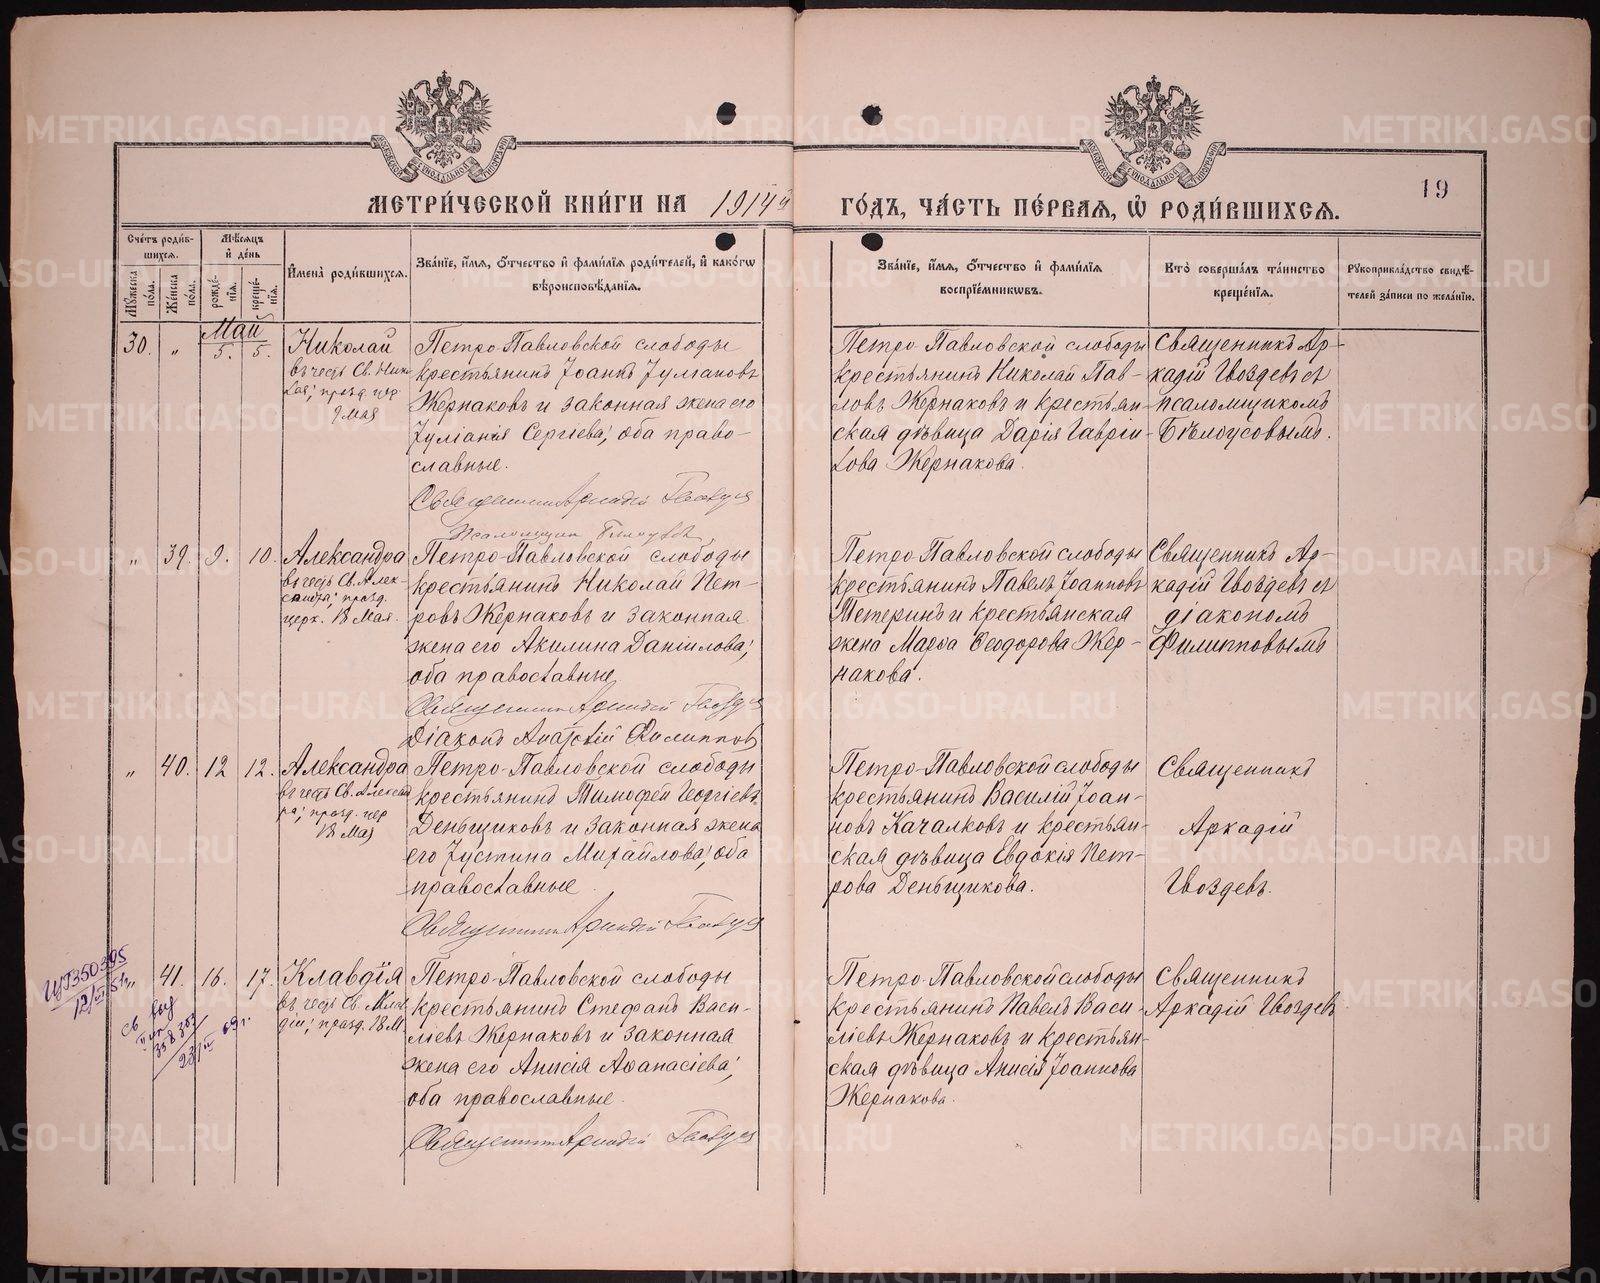 МЕТРИ́ЧЕСКОЙ КНИ́ГИ НА 1914й ГО́ДЪ, ЧА́СТЬ ПЕ́РВАЯ, Ѽ РОДИ́ВШИХСЯ.
19
Сче́тъ роди́вшихся.
Мѹжеска по́ла.
Же́нска по́ла.
Мѣ́сяцъ и҆ де́нь
рожде́нїя.
креще́нїя.
И҆мена̀ роди́вшихся.
Зва́нїе, и҆́мя, ѻ҆́тчество и҆ фами́лїя роди́телей, и҆ како́гѡ вѣроисповѣ́данїя.
Зва́нїе, и҆́мя, ѻ҆́тчество и҆ фами́лїя воспрїе́мникѡвъ.
Кто̀ соверша́лъ та́инство креще́нїя.
Рукоприкла́дство свидѣ́телей за́писи по жела́нїю.
Май
30.
„
5.
5.
Николай
въ честь Св. Нико-
лая; празд. цер
9 мая
Петро-Павловской слободы
крестьянинъ Іоаннъ Іуліановъ
Жернаковъ и законная жена его
Іуліанія Сергіева; оба право-
славные.
Священникъ Аркадій Гвоздевъ
Псаломщик Белоусов
Петро-Павловской слободы
крестьянинъ Николай Пав-
ловъ Жернаковъ и крестьян-
ская дѣвица Дарія Гаврiи-
лова Жернакова.
Священникъ Ар-
кадій Гвоздевъ съ
псаломщикомъ
Бѣлоусовымъ.
„
39.
9.
10.
Александра
въ честь Св. Алек-
сандра; празд.
церк. 18 Мая.
Петро-Павловской слободы
крестьянинъ Николай Пет-
ровъ Жернаковъ и законная
жена его Акилина Даніилова;
оба православные
Священникъ Аркадій Гвоздевъ
Діаконъ Анатолій Филиппов
Петро-Павловской слободы
крестьянинъ Павелъ Іоанновъ
Петеринъ и крестьянская
жена Марѳа Ѳеодорова Жер-
накова.
Священникъ Ар-
кадій Гвоздевъ съ
діакономъ
Филипповымъ
„
40.
12
12.
Александра
въ честь Св. Александ
ра; празд. цер
18 Мая
Петро-Павловской слободы
крестьянинъ Тимофей Георгіевъ
Деньщиковъ и законная жена
его Іустина Михайлова; оба
православные.
Священникъ Аркадій Гвоздевъ
Петро-Павловской слободы
крестьянинъ Василій Іоан-
новъ Качалковъ и крестьян-
ская дѣвица Евдокія Пет-
рова Деньщикова.
Священникъ
Аркадій
Гвоздевъ.
„
41.
16.
17.
Клавдія
въ честь Св. Клав
діи; празд. 18 М
Петро-Павловской слободы
крестьянинъ Стефанъ Васи-
ліевъ Жернаковъ и законная
жена его Анисія Аѳанасіева;
оба православные.
Священникъ Аркадій Гвоздевъ
Петро-Павловской слободы
крестьянинъ Павелъ Васи-
ліевъ Жернаковъ и крестьян-
ская дѣвица Анисія Іоаннова
Жернакова.
Священникъ
Аркадій Гвоздевъ
METRIKI.GASO-URAL.RU